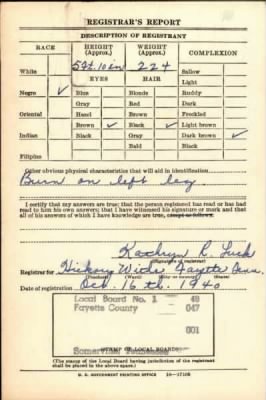 REGISTRAR'S REPORT
DESCRIPTION OF REGISTRANT
RACE HEIGHT (Approx.) WEIGHT (Approx.) COMPLEXION
White 5 ft. 10 in 224 Sallow
EYES HAIR Light
Negro ✓ Blue Blonde Ruddy
Gray Red Dark
Oriental Hazel Brown Freckled
Brown ✓ Black ✓ Light brown
Indian Black Gray Dark brown ✓
Bald Black
Filipino
Other obvious physical characteristics that will aid in identification
Burn on left leg
I certify that my answers are true; that the person registered has read or has had
read to him his own answers; that I have witnessed his signature or mark and that
all of his answers of which I have knowledge are true, except as follows:
Kathryn L.
(Signature of registrar)
Registrar for Hickory Fayette Tenn.
(Precinct) (Ward) (City or county) (State)
Date of registration Oct. 16th. 1940
Local Board No. 1 49
Fayette County 047
001
Somerville Tennessee
(STAMP OF LOCAL BOARD)
(The stamp of the Local Board having jurisdiction of the registrant
shall be placed in the above space.)
U. S. GOVERNMENT PRINTING OFFICE 16—17105